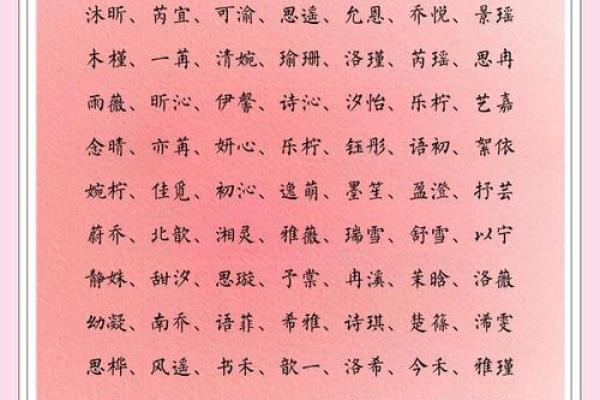 沐昕、芮宜、可渝、思遥、允恩、乔悦、景瑶
木槿、一苒、清婉、瑜珊、洛瑾、芮瑶、思冉
雨薇、昕沁、伊馨、诗沁、汐怡、乐柠、艺嘉
念晴、亦苒、妍心、乐柠、钰彤、语初、絮依
婉柠、佳觅、初沁、逸萌、墨笙、盈澄、抒芸
蔚乔、北歆、湘灵、雅薇、瑞雪、舒雪、以宁
静姝、甜汐、思璇、予棠、冉溪、茉晗、洛薇
幼凝、南乔、语菲、希雅、诗琪、楚篠、浠雯
思桦、风遥、书禾、歆一、洛希、今禾、雅瑾